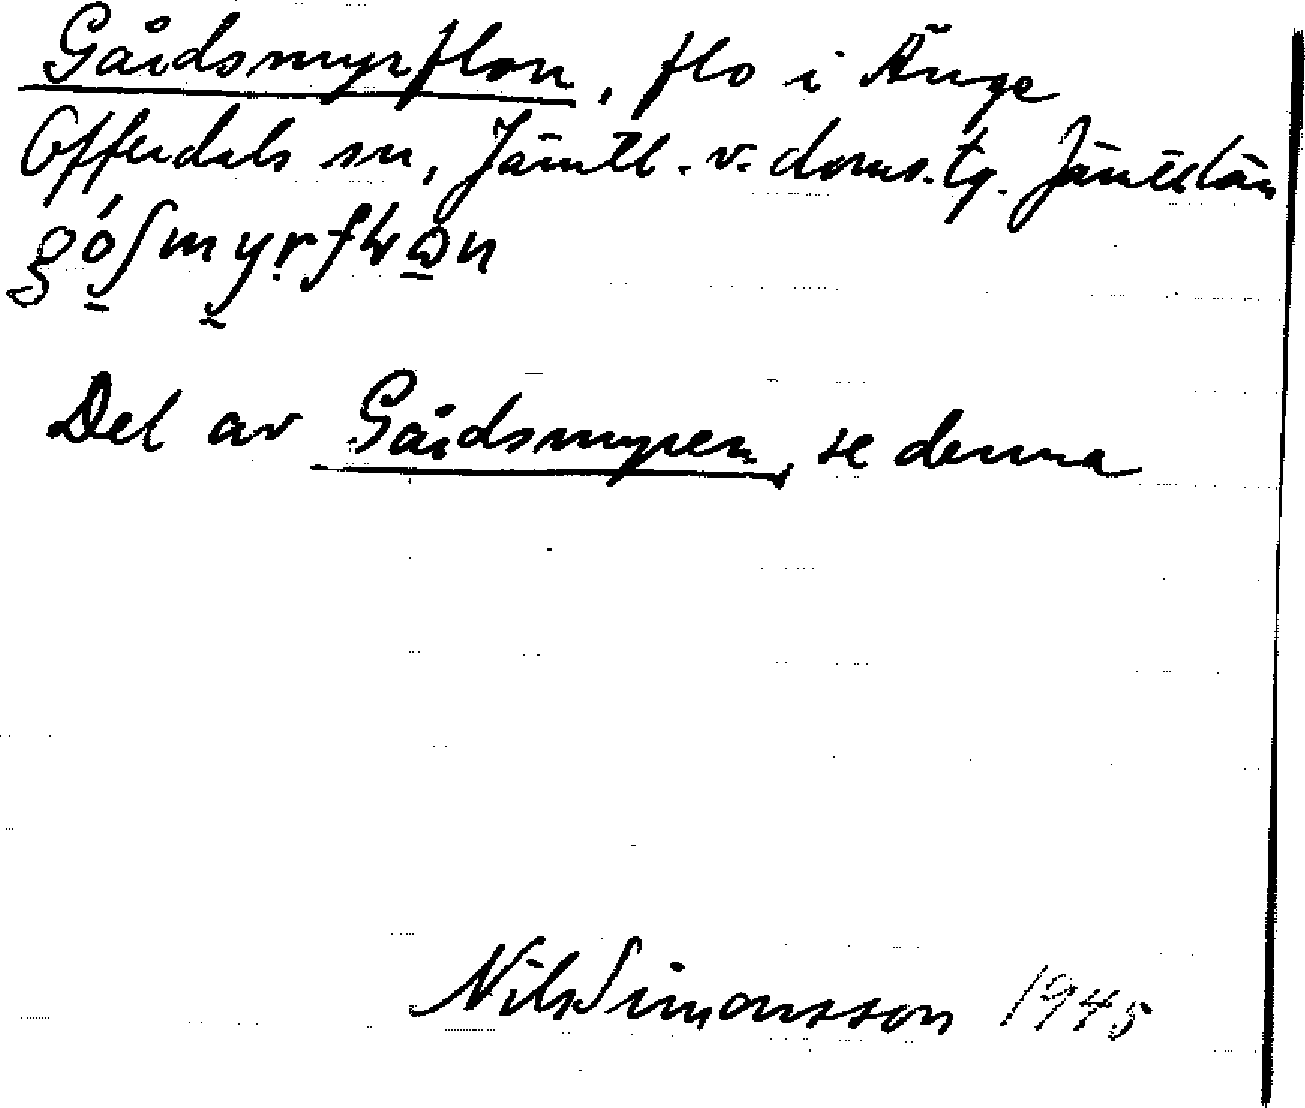 Gåidsmyrflon, flo i Änge
Offerdals sn, Jämtl. v. doms. tg. Jämtl. län
Del av Gåidsmyren, se denna
Nils Simonsson 1945